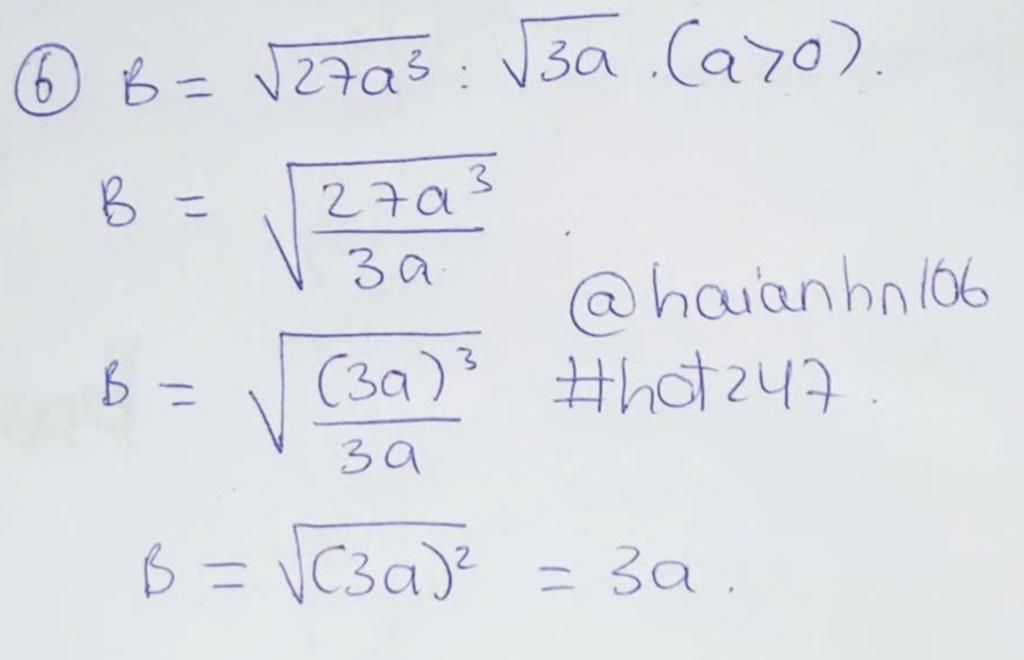 ⑥ B = √27a³ : √3a . (a>0).
B = √(27a³/3a)
@haianhn106
B = √((3a)³/3a)
#hot247.
B = √(3a)² = 3a.